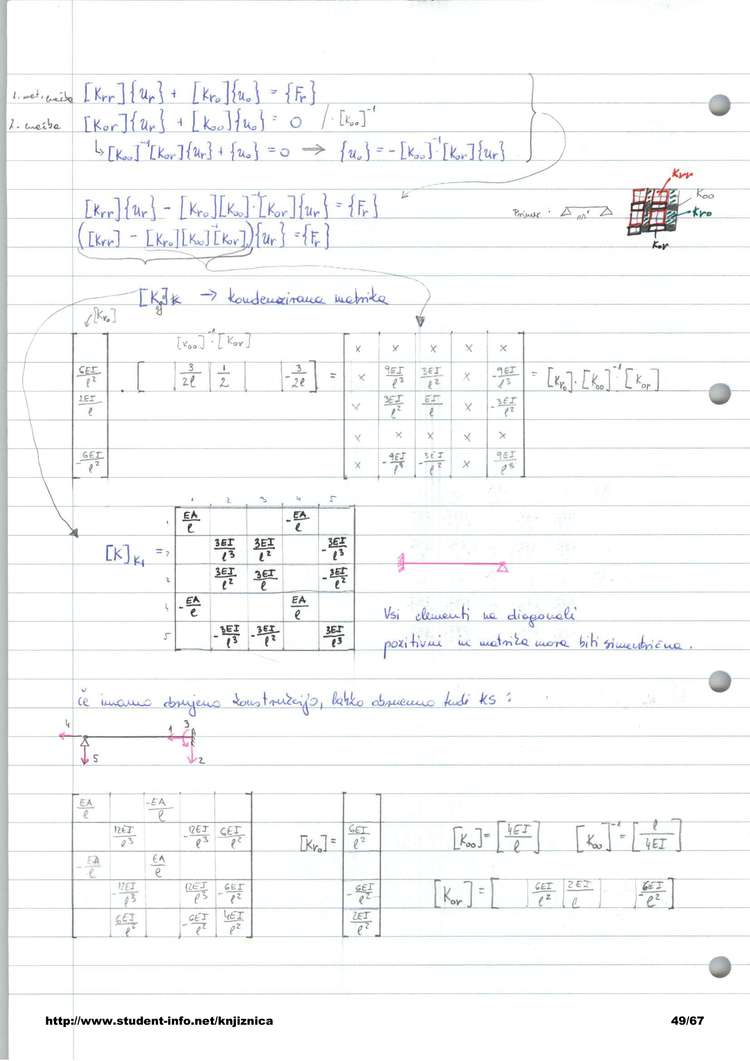 1. mat. enačba [Krr]{ur} + [Kro]{uo} = {Fr}
2. enačba [Kor]{ur} + [Koo]{uo} = 0 /·[Koo]⁻¹
↳ [Koo]⁻¹[Kor]{ur} + {uo} = 0 → {uo} = -[Koo]⁻¹·[Kor]{ur}
[Krr]{ur} - [Kro][Koo]⁻¹·[Kor]{ur} = {Fr}
([Krr] - [Kro][Koo]⁻¹[Kor]){ur} = {Fr}
Primer:
Krr
Koo
Kro
Kor
→ kondenzirana matrika
[Kro]
[Koo]⁻¹·[Kor]
x x x x x
6EI/l² · [ 3/2l 1/2 -3/2l ] = x 9EI/l³ 3EI/l² x -9EI/l³ = [Kro]·[Koo]⁻¹·[Kor]
2EI/l x 3EI/l² EI/l x -3EI/l²
x x x x x
-6EI/l² x -9EI/l³ -3EI/l² x 9EI/l³
1 2 3 4 5
1 EA/l -EA/l
[K]K1 = 2 3EI/l³ 3EI/l² -3EI/l³
3 3EI/l² 3EI/l -3EI/l²
4 -EA/l EA/l
5 -3EI/l³ -3EI/l² 3EI/l³
Vsi elementi na diagonali
pozitivni in matrika mora biti simetrična.
če imamo obrnjeno konstrukcijo, lahko obrnemo tudi KS:
4 1 3
5 2
EA/l -EA/l
12EI/l³ -12EI/l³ 6EI/l²
-EA/l EA/l
-12EI/l³ 12EI/l³ -6EI/l²
6EI/l² -6EI/l² 4EI/l²
[Kro] = 6EI/l² -6EI/l² 2EI/l
[Koo] = [4EI/l] [Koo]⁻¹ = [l/4EI]
[Kor] = [ 6EI/l² 2EI/l -6EI/l² ]
http://www.student-info.net/knjiznica
49/67